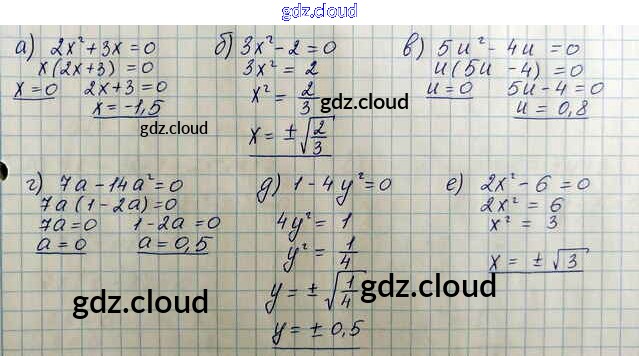 gdz.cloud
а) 2x² + 3x = 0
x(2x+3) = 0
x = 0 2x+3 = 0
x = -1,5
gdz.cloud
б) 3x² - 2 = 0
3x² = 2
x² = 2/3
gdz.cloud
x = ±√(2/3)
в) 5u² - 4u = 0
u(5u - 4) = 0
u = 0 5u - 4 = 0
u = 0,8
г) 7a - 14a² = 0
7a(1 - 2a) = 0
7a = 0 1 - 2a = 0
a = 0 a = 0,5
gdz.cloud
д) 1 - 4y² = 0
4y² = 1
y² = 1/4
y = ±√(1/4)
y = ± 0,5
е) 2x² - 6 = 0
2x² = 6
x² = 3
x = ± √3
gdz.cloud